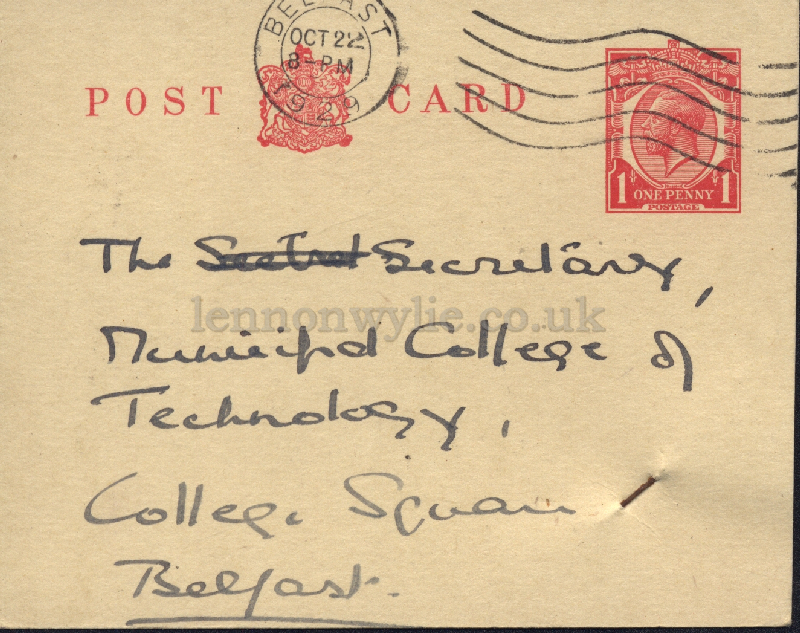 BELFAST
OCT 22
8 - PM
1929
POST CARD
1 ONE PENNY 1
POSTAGE
The Secretary,
lennonwylie.co.uk
Municipal College of
Technology,
College Square
Belfast.